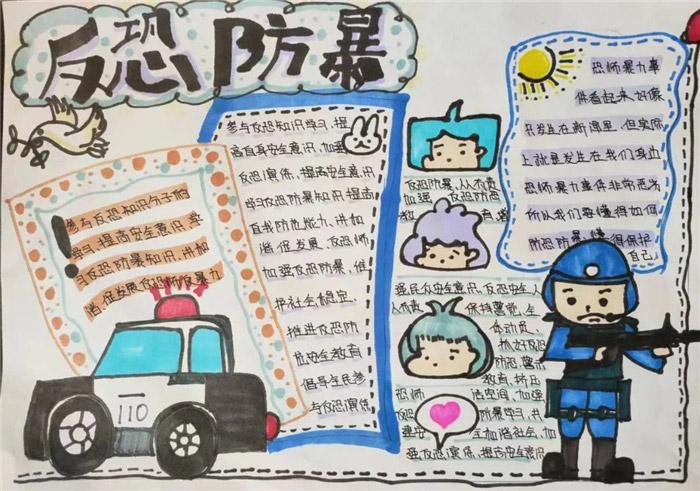 反恐防暴
参与反恐知识句子们
学习.提高安全意识,学
习反恐防暴知识,讲和
谐.促发展.反恐师反暴力
110
参与反恐知识学习,提
高自身安全意识,加强
反恐演练,提高安全意识
学习反恐防暴知识提高
自我防范能力,讲和
谐,促发展,反恐师
加强反恐防暴,维
护社会稳定,
推进反恐防
范安全教育
倡导全民参
与反恐演练
反恐防暴,人人有责
加强 反恐防范
教育
强民众安全意识,反恐安全人
人有责 保持警觉,全
体动员,
抓好反恐
防恐警示
教育,挤压
恐师 活空间,加强
反恐 防暴学习,共
建安 全和谐社会,加
强反恐演练,提高安全意识
恐师暴力事
件看起来好像
只发生在新闻里,但实际
上就是发生在我们身边
恐师暴力事件非常厉害
所以我们要懂得如何
防恐防暴,懂得保护
自己.